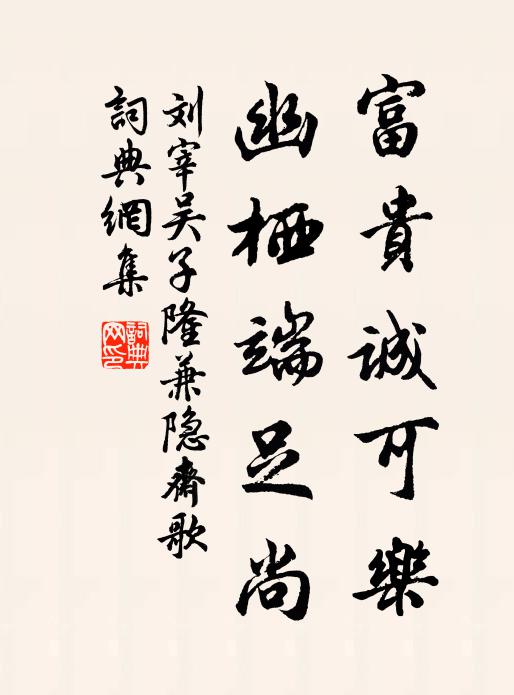 富貴誠可樂
幽栖端足尚
刘宰吴子隆兼隐齋歌
詞典網集
詞典網印